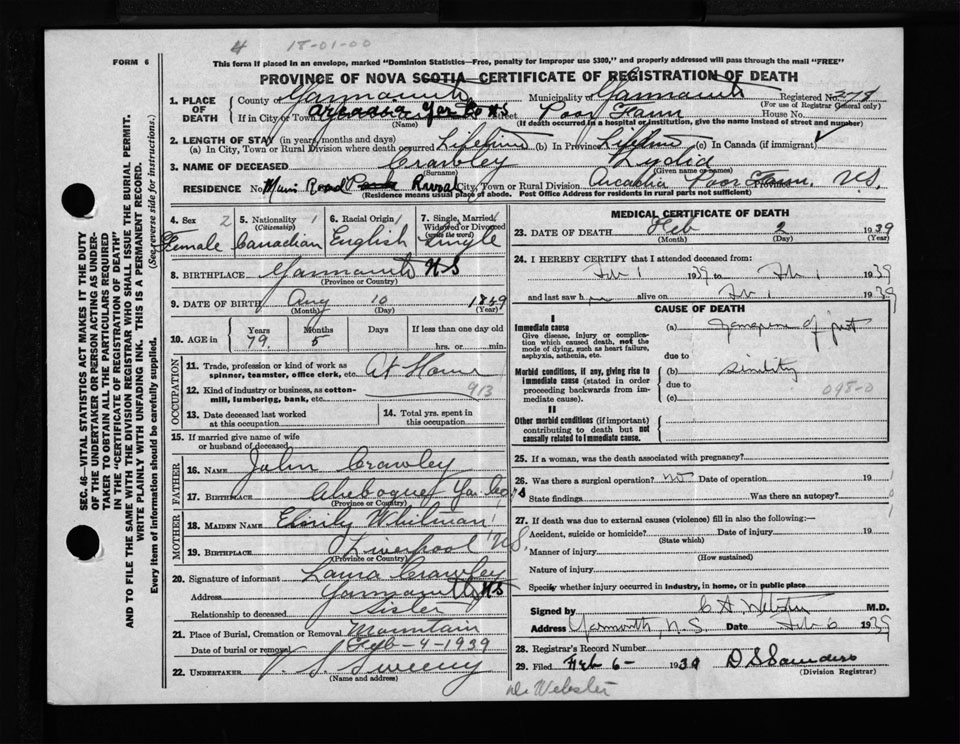 4 18-01-00
FORM 6
This form if placed in an envelope, marked "Dominion Statistics—Free, penalty for improper use $300," and properly addressed will pass through the mail "FREE"
PROVINCE OF NOVA SCOTIA—CERTIFICATE OF REGISTRATION OF DEATH
1. PLACE OF DEATH
County of Yarmouth Municipality of Yarmouth Registered No. 278
(For use of Registrar General only)
If in City or Town Arcadia Yar Co NS Street Poor Farm House No.
(Name) (If death occurred in a hospital or institution, give the name instead of street and number)
2. LENGTH OF STAY (in years, months and days)
(a) In City, Town or Rural Division where death occurred Lifetime (b) In Province Lifetime (c) In Canada (if immigrant) ✓
3. NAME OF DECEASED Crawley Lydia
(Surname) (Given name or names)
RESIDENCE No. Main Road Rural City, Town or Rural Division Arcadia Poor Farm. Province N.S.
(Residence means usual place of abode. Post Office Address for residents in rural parts not sufficient)
4. Sex 2 Female
5. Nationality 1 (Citizenship) Canadian
6. Racial Origin 1 English
7. Single, Married, Widowed or Divorced (write the word) Single
8. BIRTHPLACE Yarmouth NS
(Province or Country)
9. DATE OF BIRTH Aug 10 1859
(Month) (Day) (Year)
10. AGE in Years 79 Months 5 Days If less than one day old
hrs. or min.
OCCUPATION
11. Trade, profession or kind of work as spinner, teamster, office clerk, etc. At Home
12. Kind of industry or business, as cotton-mill, lumbering, bank, etc. 913
13. Date deceased last worked at this occupation
14. Total yrs. spent in this occupation
15. If married give name of wife or husband of deceased
FATHER
16. NAME John Crawley
17. BIRTHPLACE Chebogue Yar Co NS
(Province or Country)
MOTHER
18. MAIDEN NAME Emily Whitman
19. BIRTHPLACE Liverpool N.S.
(Province or Country)
20. Signature of informant Laura Crawley
Address Yarmouth NS
Relationship to deceased Sister
21. Place of Burial, Cremation or Removal Mountain
Date of burial or removal Feb-4-1939
22. UNDERTAKER V. S. Sweeny
(Name and address)
MEDICAL CERTIFICATE OF DEATH
23. DATE OF DEATH Feb 2 1939
(Month) (Day) (Year)
24. I HEREBY CERTIFY that I attended deceased from:
Feb 1 1939 to Feb 1 1939
and last saw her alive on Feb 1 1939
CAUSE OF DEATH
I
Immediate cause
Give disease, injury or complication which caused death, not the mode of dying, such as heart failure, asphyxia, asthenia, etc.
(a) Gangrene of foot
due to
Morbid conditions, if any, giving rise to immediate cause (stated in order proceeding backwards from immediate cause).
(b) senility
due to 098-0
(c)
II
Other morbid conditions (if important) contributing to death but not causally related to immediate cause.
25. If a woman, was the death associated with pregnancy?
26. Was there a surgical operation? no Date of operation 19
State findings Was there an autopsy?
27. If death was due to external causes (violence) fill in also the following:—
Accident, suicide or homicide? Date of injury 19
(State which)
Manner of injury
(How sustained)
Nature of injury
Specify whether injury occurred in industry, in home, or in public place
Signed by C A Webster M.D.
Address Yarmouth, N.S. Date Feb 6 1939
28. Registrar's Record Number
29. Filed Feb 6- 1939 D S Saunders
(Division Registrar)
Dr Webster
SEC. 46—VITAL STATISTICS ACT MAKES IT THE DUTY
OF THE UNDERTAKER OR PERSON ACTING AS UNDER-
TAKER TO OBTAIN ALL THE PARTICULARS REQUIRED
IN THE "CERTIFICATE OF REGISTRATION OF DEATH"
AND TO FILE THE SAME WITH THE DIVISION REGISTRAR WHO SHALL ISSUE THE BURIAL PERMIT.
WRITE PLAINLY WITH UNFADING INK. THIS IS A PERMANENT RECORD.
Every item of information should be carefully supplied. (See reverse side for instructions.)